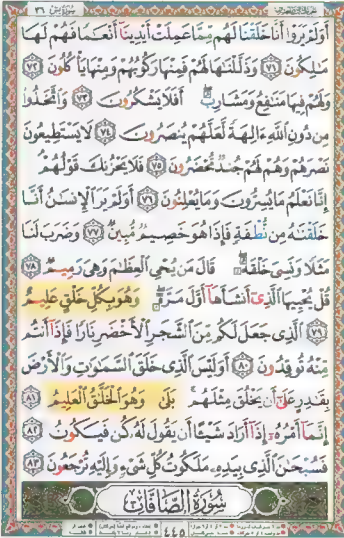 أَوَلَمْ يَرَوْا أَنَّا خَلَقْنَا لَهُم مِّمَّا عَمِلَتْ أَيْدِينَا أَنْعَامًا فَهُمْ لَهَا
مَالِكُونَ ٧١ وَذَلَّلْنَاهَا لَهُمْ فَمِنْهَا رَكُوبُهُمْ وَمِنْهَا يَأْكُلُونَ ٧٢
وَلَهُمْ فِيهَا مَنَافِعُ وَمَشَارِبُ أَفَلَا يَشْكُرُونَ ٧٣ وَاتَّخَذُوا
مِن دُونِ اللَّهِ ءَالِهَةً لَّعَلَّهُمْ يُنصَرُونَ ٧٤ لَا يَسْتَطِيعُونَ
نَصْرَهُمْ وَهُمْ لَهُمْ جُندٌ مُّحْضَرُونَ ٧٥ فَلَا يَحْزُنكَ قَوْلُهُمْ
إِنَّا نَعْلَمُ مَا يُسِرُّونَ وَمَا يُعْلِنُونَ ٧٦ أَوَلَمْ يَرَ الْإِنسَانُ أَنَّا
خَلَقْنَاهُ مِن نُّطْفَةٍ فَإِذَا هُوَ خَصِيمٌ مُّبِينٌ ٧٧ وَضَرَبَ لَنَا
مَثَلًا وَنَسِيَ خَلْقَهُ قَالَ مَن يُحْيِ الْعِظَامَ وَهِيَ رَمِيمٌ ٧٨
قُلْ يُحْيِيهَا الَّذِي أَنشَأَهَا أَوَّلَ مَرَّةٍ وَهُوَ بِكُلِّ خَلْقٍ عَلِيمٌ
٧٩ الَّذِي جَعَلَ لَكُم مِّنَ الشَّجَرِ الْأَخْضَرِ نَارًا فَإِذَا أَنتُم
مِّنْهُ تُوقِدُونَ ٨٠ أَوَلَيْسَ الَّذِي خَلَقَ السَّمَاوَاتِ وَالْأَرْضَ
بِقَادِرٍ عَلَى أَن يَخْلُقَ مِثْلَهُم بَلَى وَهُوَ الْخَلَّاقُ الْعَلِيمُ ٨١
إِنَّمَا أَمْرُهُ إِذَا أَرَادَ شَيْئًا أَن يَقُولَ لَهُ كُن فَيَكُونُ ٨٢
فَسُبْحَانَ الَّذِي بِيَدِهِ مَلَكُوتُ كُلِّ شَيْءٍ وَإِلَيْهِ تُرْجَعُونَ ٨٣
سُورَةُ الصَّافَّاتِ
٤٤٥